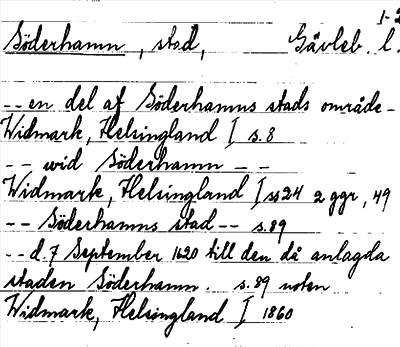 1-2
Söderhamn, stad, Gävleb. l.
-- en del af Söderhamns stads område -
Widmark, Helsingland I s. 8
-- wid Söderhamn --
Widmark, Helsingland I ss 24 2 ggr, 49
-- Söderhamns stad -- s. 89
-- d. 7 September 1620 till den då anlagda
staden Söderhamn. s. 89 noten
Widmark, Helsingland I 1860